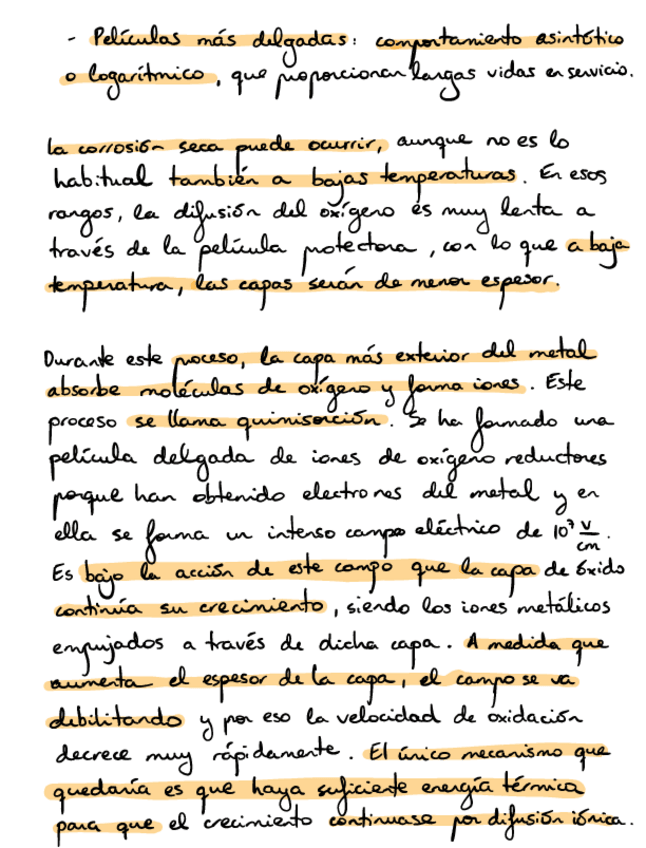 - Películas más delgadas: comportamiento asintótico
o logarítmico, que proporcionan largas vidas en servicio.
La corrosión seca puede ocurrir, aunque no es lo
habitual también a bajas temperaturas. En esos
rangos, la difusión del oxígeno es muy lenta a
través de la película protectora, con lo que a baja
temperatura, las capas serán de menor espesor.
Durante este proceso, la capa más exterior del metal
absorbe moléculas de oxígeno y forma iones. Este
proceso se llama quimisorción. Se ha formado una
película delgada de iones de oxígeno reductores
porque han obtenido electrones del metal y en
ella se forma un intenso campo eléctrico de 10⁷ V/cm.
Es bajo la acción de este campo que la capa de óxido
continúa su crecimiento, siendo los iones metálicos
empujados a través de dicha capa. A medida que
aumenta el espesor de la capa, el campo se va
debilitando y por eso la velocidad de oxidación
decrece muy rápidamente. El único mecanismo que
quedaría es que haya suficiente energía térmica
para que el crecimiento continuase por difusión iónica.